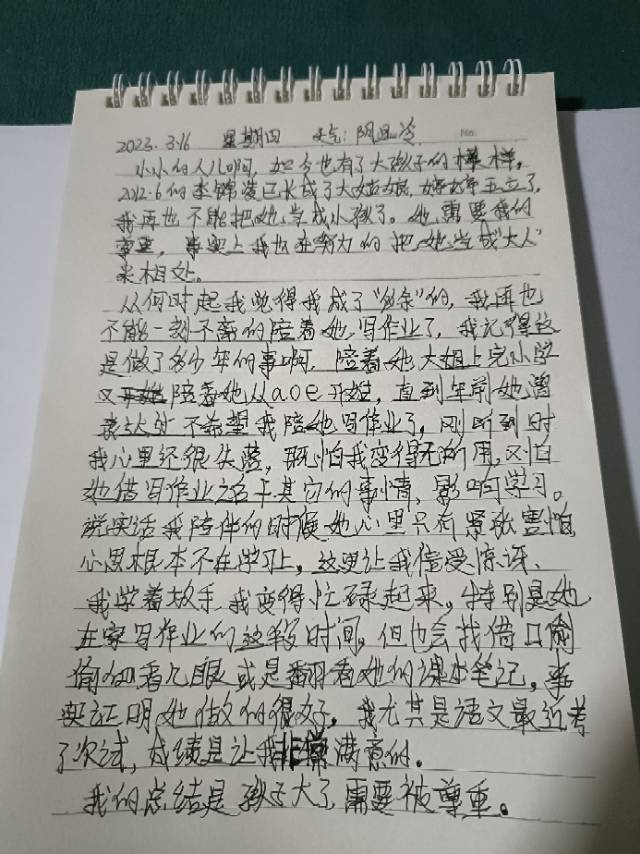 2023. 3.16 星期四 天气:阴且冷 No.
小小的人儿啊,如今也有了大孩子的模样。
2012.6的李锦凌已长成了大姑娘,婷婷玉立了,
我再也不能把她当成小孩了。她需要我的
尊重,事实上我也在努力的把她当成"大人"
来相处。
从何时起我觉得我成了"多余"的,我再也
不能一刻不离的陪着她写作业了,我记得这
是做了多少年的事啊,陪着她大姐上完小学
又开始陪着她从aoe开始,直到年前她
表达处不希望我陪她写作业了,刚听到时
我心里还很失落,既怕我变得无所用,又怕
她借写作业之名干其它的事情,影响学习。
说实话我陪伴的时候她心里只有紧张害怕
心思根本不在学习上,这更让我倍受惊讶、
我学着放手,我变得忙碌起来,特别是她
在家写作业的这段时间,但也会找借口偷
偷的看几眼或是翻看她的课本笔记,事
实证明她做的很好。我尤其是语文最近考
了次试,成绩是让我非常满意的。
我的总结是孩子大了需要被尊重。